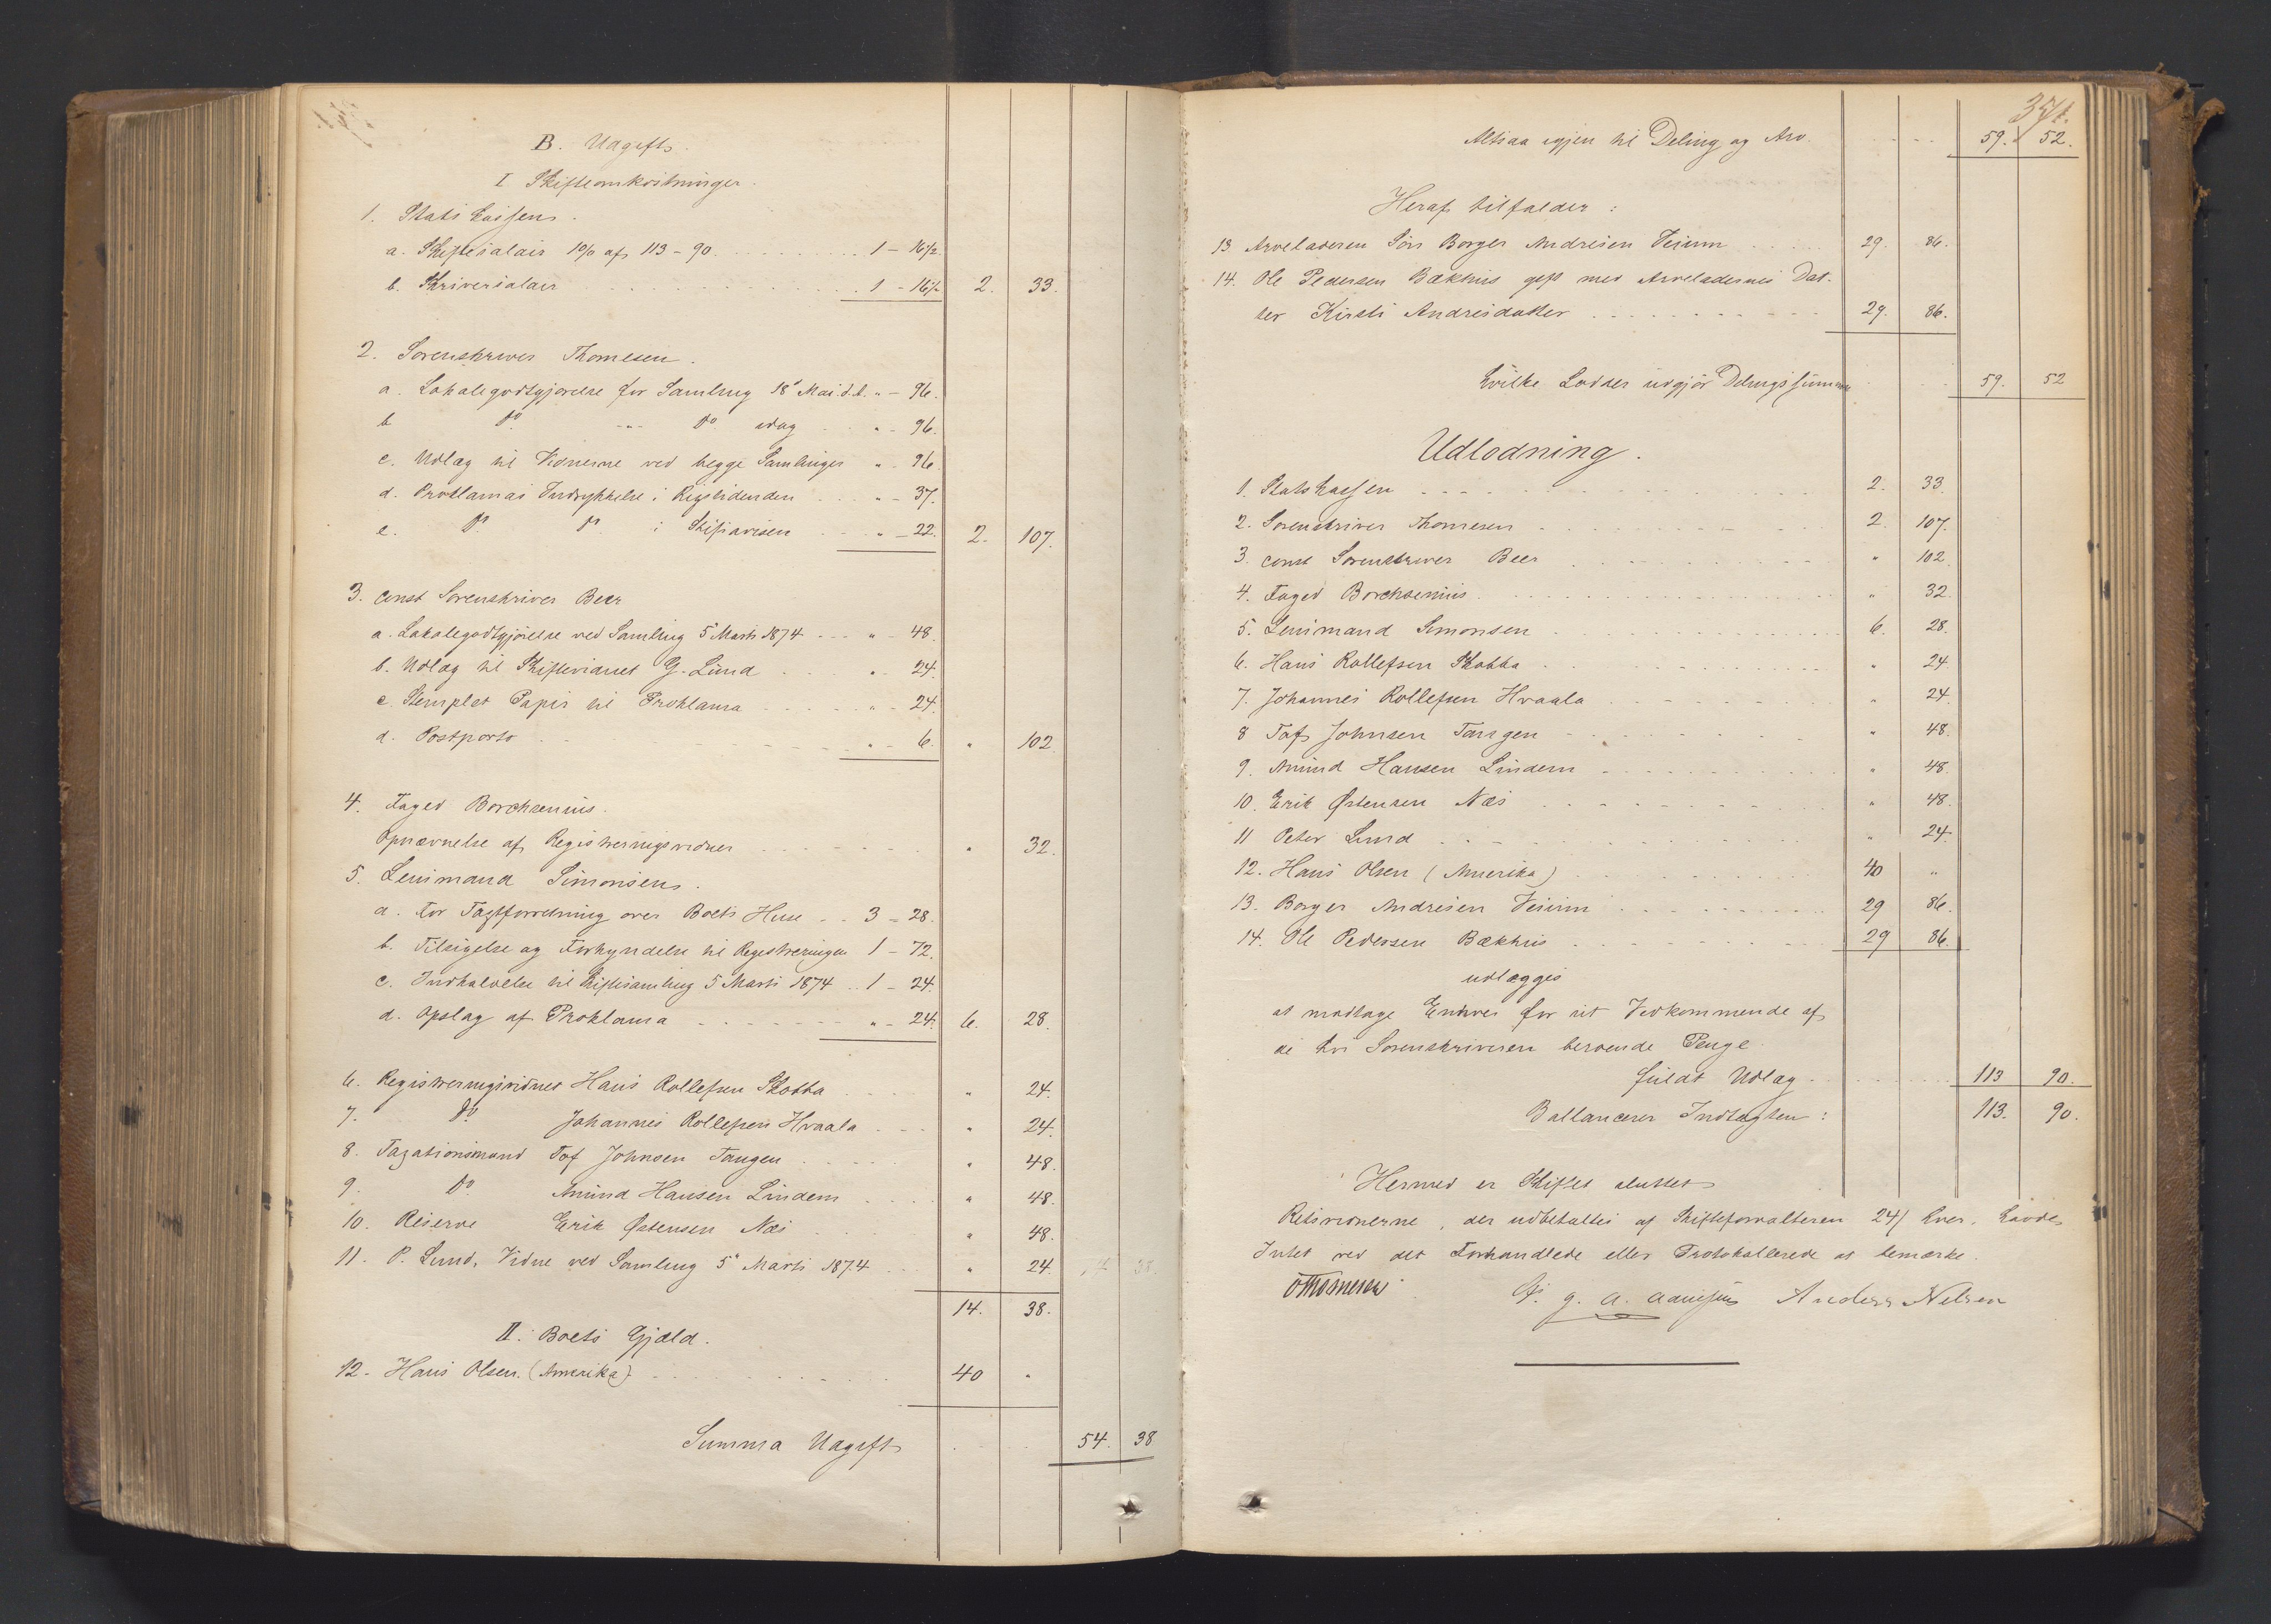 B. Udgift.
I Skifteomkostninger.
1. Statskassen.
a. Skiftesalair 1 0/0 af 113 - 90. 1 - 16 1/2
b. Skriversalair 1 - 16 1/2 2. 33.
2. Sorenskriver Thomesen.
a. Lokalegodtgjørelse for Samling 18de Mai d.A. " - 96.
b Do -"- Do idag " - 96.
c. Udlæg til Vidnerne ved begge Samlinger " - 96
d. Proklamas Indrykkelse i Rigstidenden " - 37.
e. Do Do i Stiftsavisen " - 22. 2. 107.
3. const Sorenskriver Beer
a. Lokalegodtgjørelse ved Samling 5te Marts 1874 " - 48.
b. Udlæg til Skiftevidnet G. Lund " - 24.
c. Stemplet Papir til Proklama " - 24.
d. Postporto " - 6. " 102.
4. Foged Borchsenius.
Opnævnelse af Registreringsvidner " 32.
5. Lensmand Simonsen.
a. For Taxtforretning over Boets Huse 3 - 28.
b. Tilsigelse og Forkyndelse til Registreringen 1 - 72.
c. Indkaldelse til Skiftesamling 5 Marts 1874 1 - 24.
d. Opslag af Proklama " - 24. 6. 28.
6. Registreringsvidnet Hans Rollefsen Skobba " 24.
7. Do Johannes Rollefsen Hvaala " 24.
8. Taxationsmand Tof Johnsen Tangen " 48.
9. Do Amund Hansen Lindem " 48.
10. Reserve Erik Østensen Næs " 48.
11. P. Lund, Vidne ved Samling 5te Marts 1874 " 24.
14. 38.
II. Boets Gjæld.
12. Hans Olsen (Amerika) 40 "
Summa Udgift 54. 38
371.
Altsaa igjen til Deling og Arv 59. 52.
Heraf tilfalder :
13 Arveladeren Søn Borger Andresen Veium 29. 86.
14. Ole Pedersen Bækhus gift med Arveladernes Dat-
ter Kirsti Andresdatter 29. 86.
hvilke Lodder udgjør Delingssummen 59. 52
Udlodning.
1. Statskassen 2. 33.
2. Sorenskriver Thomesen 2. 107.
3. const Sorenskriver Beer " 102.
4. Foged Borchsenius " 32.
5. Lensmand Simonsen 6. 28.
6. Hans Rollefsen Skobba " 24
7. Johannes Rollefsen Hvaala " 24.
8 Tof Johnsen Tangen " 48.
9. Amund Hansen Lindem " 48.
10. Erik Østensen Næs " 48.
11 Peter Lund " 24.
12. Hans Olsen (Amerika) 40 "
13. Borger Andresen Veium 29 86.
14. Ole Pedersen Bækhus 29 86.
udlægges
at modtage Enhver for sit Vedkommende af
de hos Sorenskriveren beroende Penge.
fuldt Udlæg 113 90.
Ballancerer Indtægten : 113. 90.
Hermed er Skiftet sluttet
Retsvidnerne, der udbetaltes af Skifteforvalteren 24/ hver, havde
Intet ved det Forhandlede eller Protokollerede at bemærke.
OThomesen G. A. Anders Nelsen